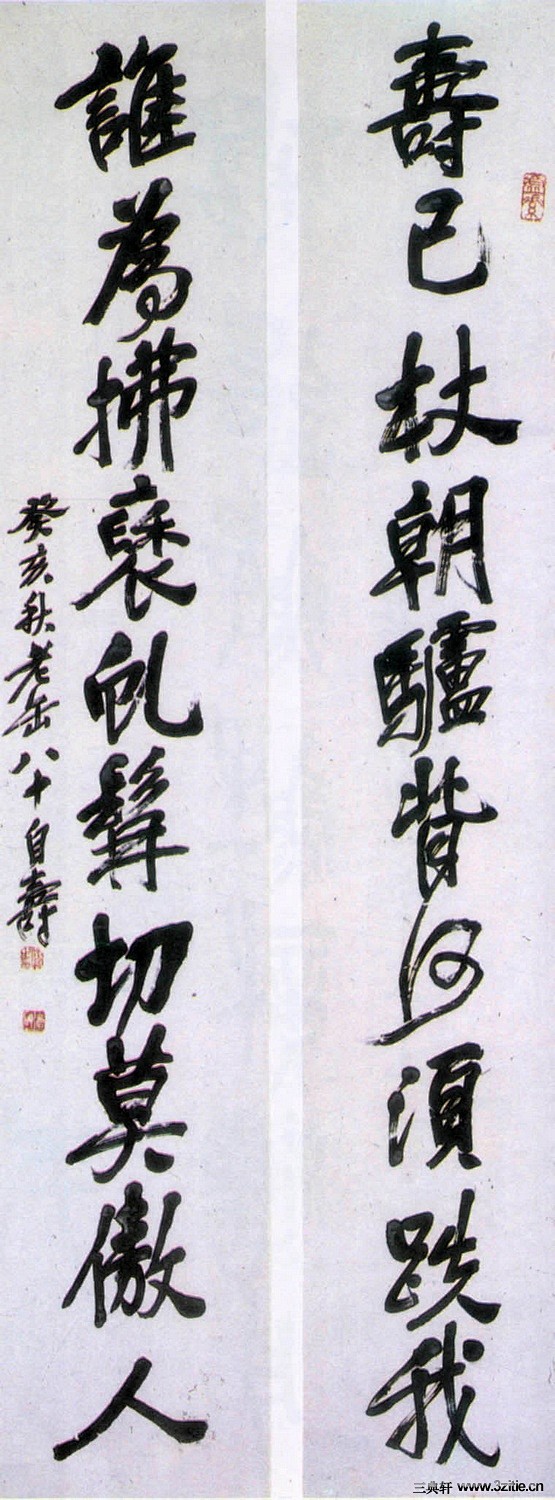 壽已杖朝驢背何須跌我
誰為拂褎虬髯切莫傲人
癸亥秋老缶八十自壽
三典轩 www.3zitie.cn